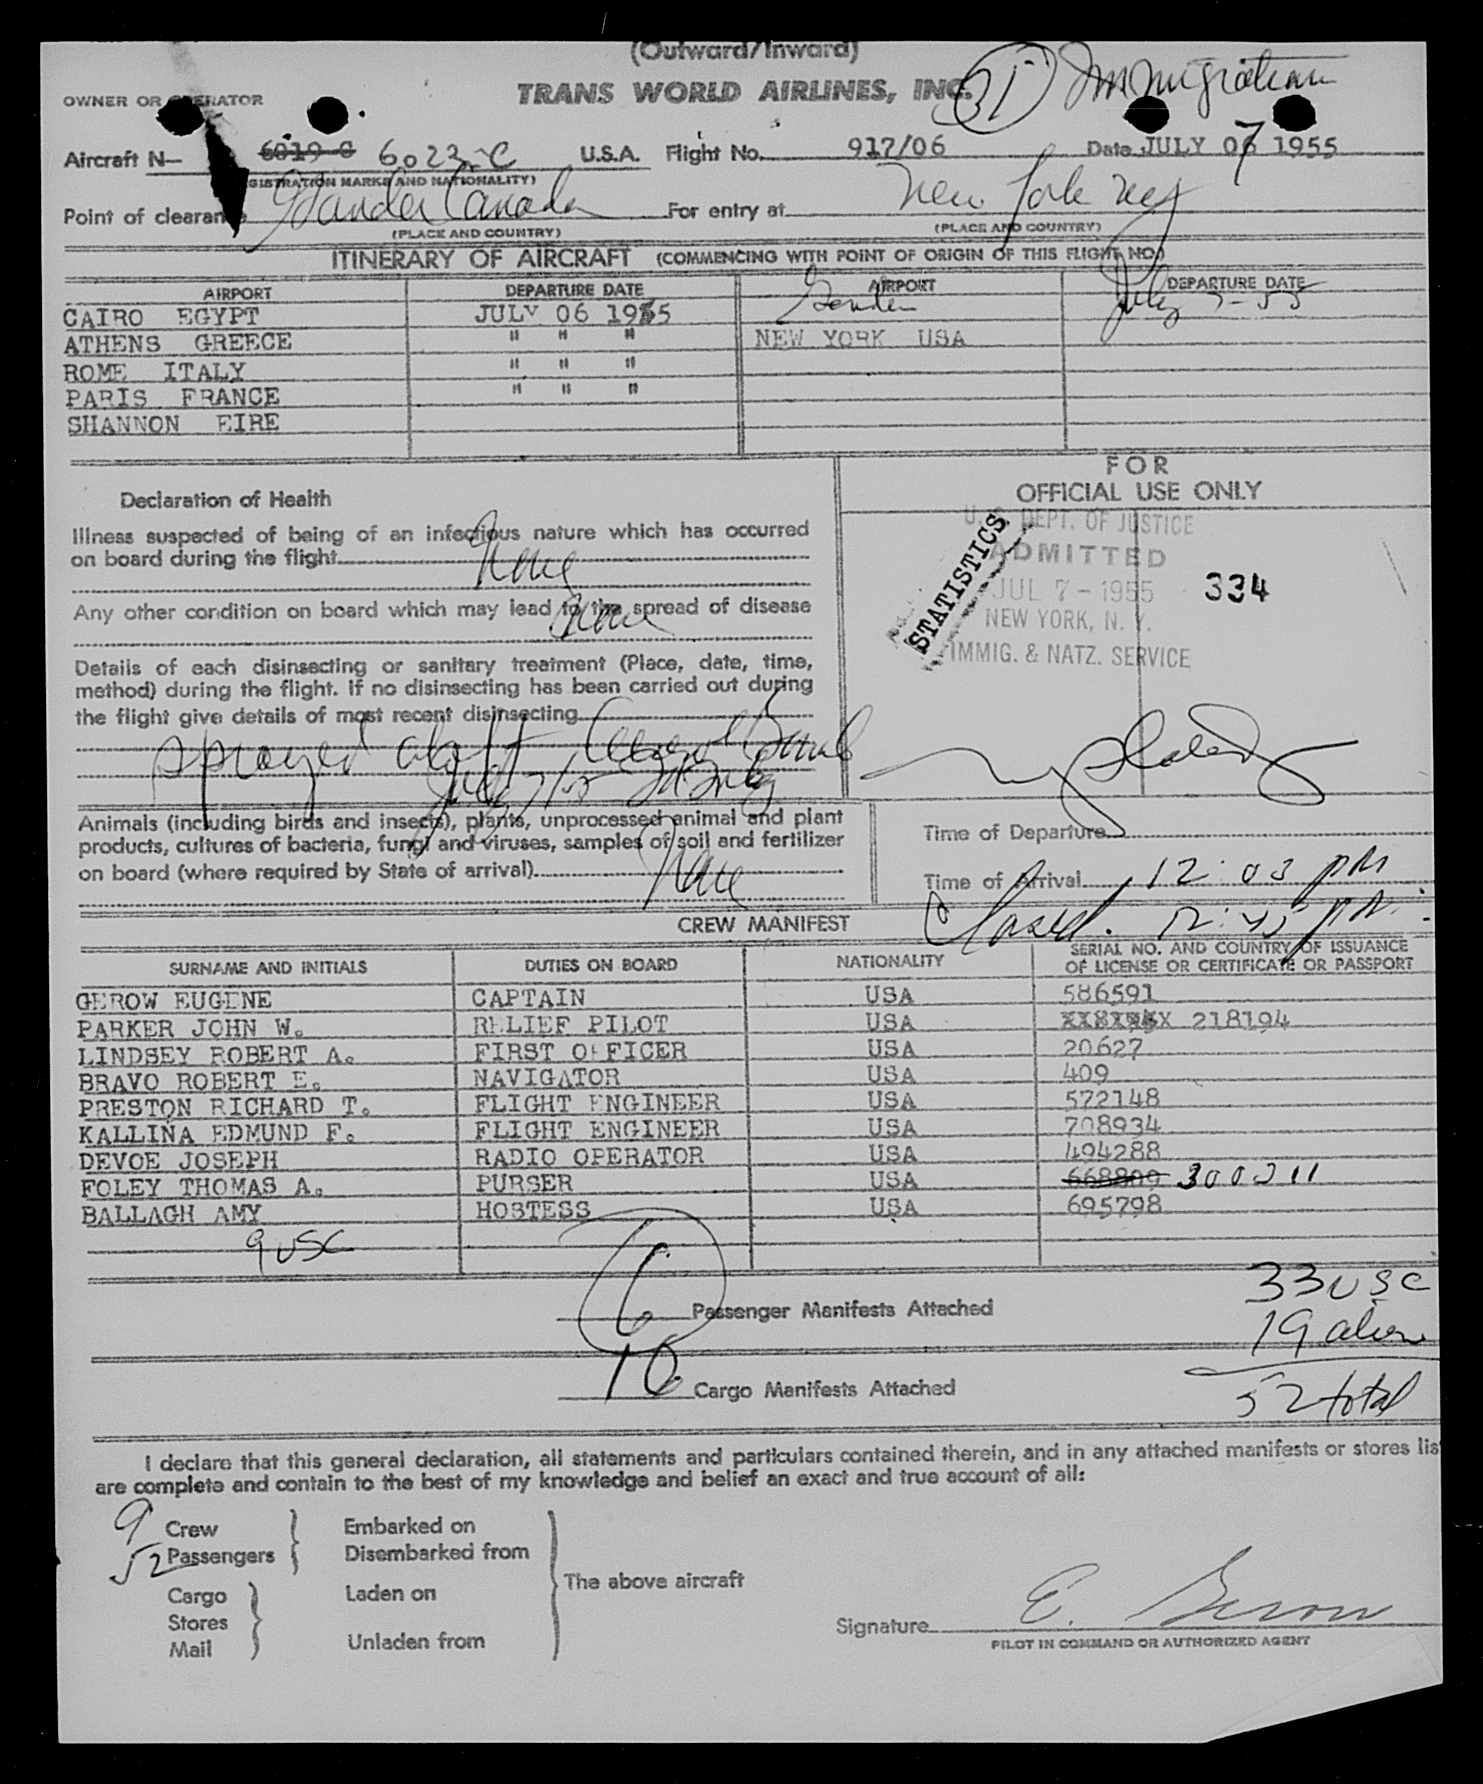 (Outward/Inward)
TRANS WORLD AIRLINES, INC.
31 Immigration
OWNER OR OPERATOR
Aircraft N— 6019-C 6023-C U.S.A. Flight No. 917/06 Date JULY 06 7 1955
(REGISTRATION MARKS AND NATIONALITY)
Point of clearance Gander Canada For entry at New York
(PLACE AND COUNTRY) (PLACE AND COUNTRY)
ITINERARY OF AIRCRAFT (COMMENCING WITH POINT OF ORIGIN OF THIS FLIGHT NO.)
AIRPORT DEPARTURE DATE AIRPORT DEPARTURE DATE
CAIRO EGYPT JULY 06 1955 Gander July 7-55
ATHENS GREECE " " " NEW YORK USA
ROME ITALY " " "
PARIS FRANCE " " "
SHANNON EIRE
FOR
OFFICIAL USE ONLY
Declaration of Health
Illness suspected of being of an infectious nature which has occurred
on board during the flight None
Any other condition on board which may lead to the spread of disease
None
Details of each disinsecting or sanitary treatment (Place, date, time,
method) during the flight. If no disinsecting has been carried out during
the flight give details of most recent disinsecting
Sprayed aloft Aerosol Bomb
July 7/55
U.S. DEPT. OF JUSTICE
ADMITTED
JUL 7 - 1955 334
NEW YORK, N. Y.
IMMIG. & NATZ. SERVICE
STATISTICS
Animals (including birds and insects), plants, unprocessed animal and plant
products, cultures of bacteria, fungi and viruses, samples of soil and fertilizer
on board (where required by State of arrival) None
Time of Departure
Time of Arrival 12:03 PM
Closed. 12:45 PM.
CREW MANIFEST
SURNAME AND INITIALS DUTIES ON BOARD NATIONALITY SERIAL NO. AND COUNTRY OF ISSUANCE
OF LICENSE OR CERTIFICATE OR PASSPORT
GEROW EUGENE CAPTAIN USA 586591
PARKER JOHN W. RELIEF PILOT USA 218194
LINDSEY ROBERT A. FIRST OFFICER USA 20627
BRAVO ROBERT E. NAVIGATOR USA 409
PRESTON RICHARD T. FLIGHT ENGINEER USA 572148
KALLINA EDMUND F. FLIGHT ENGINEER USA 708934
DEVOE JOSEPH RADIO OPERATOR USA 494288
FOLEY THOMAS A. PURSER USA 668809 300211
BALLAGH AMY HOSTESS USA 695798
9 USC
6 Passenger Manifests Attached
33 USC
19 alien
52 total
10 Cargo Manifests Attached
I declare that this general declaration, all statements and particulars contained therein, and in any attached manifests or stores lis
are complete and contain to the best of my knowledge and belief an exact and true account of all:
9 Crew Embarked on
52 Passengers Disembarked from
The above aircraft
Cargo Laden on
Stores
Mail Unladen from
Signature E. Gerow
PILOT IN COMMAND OR AUTHORIZED AGENT